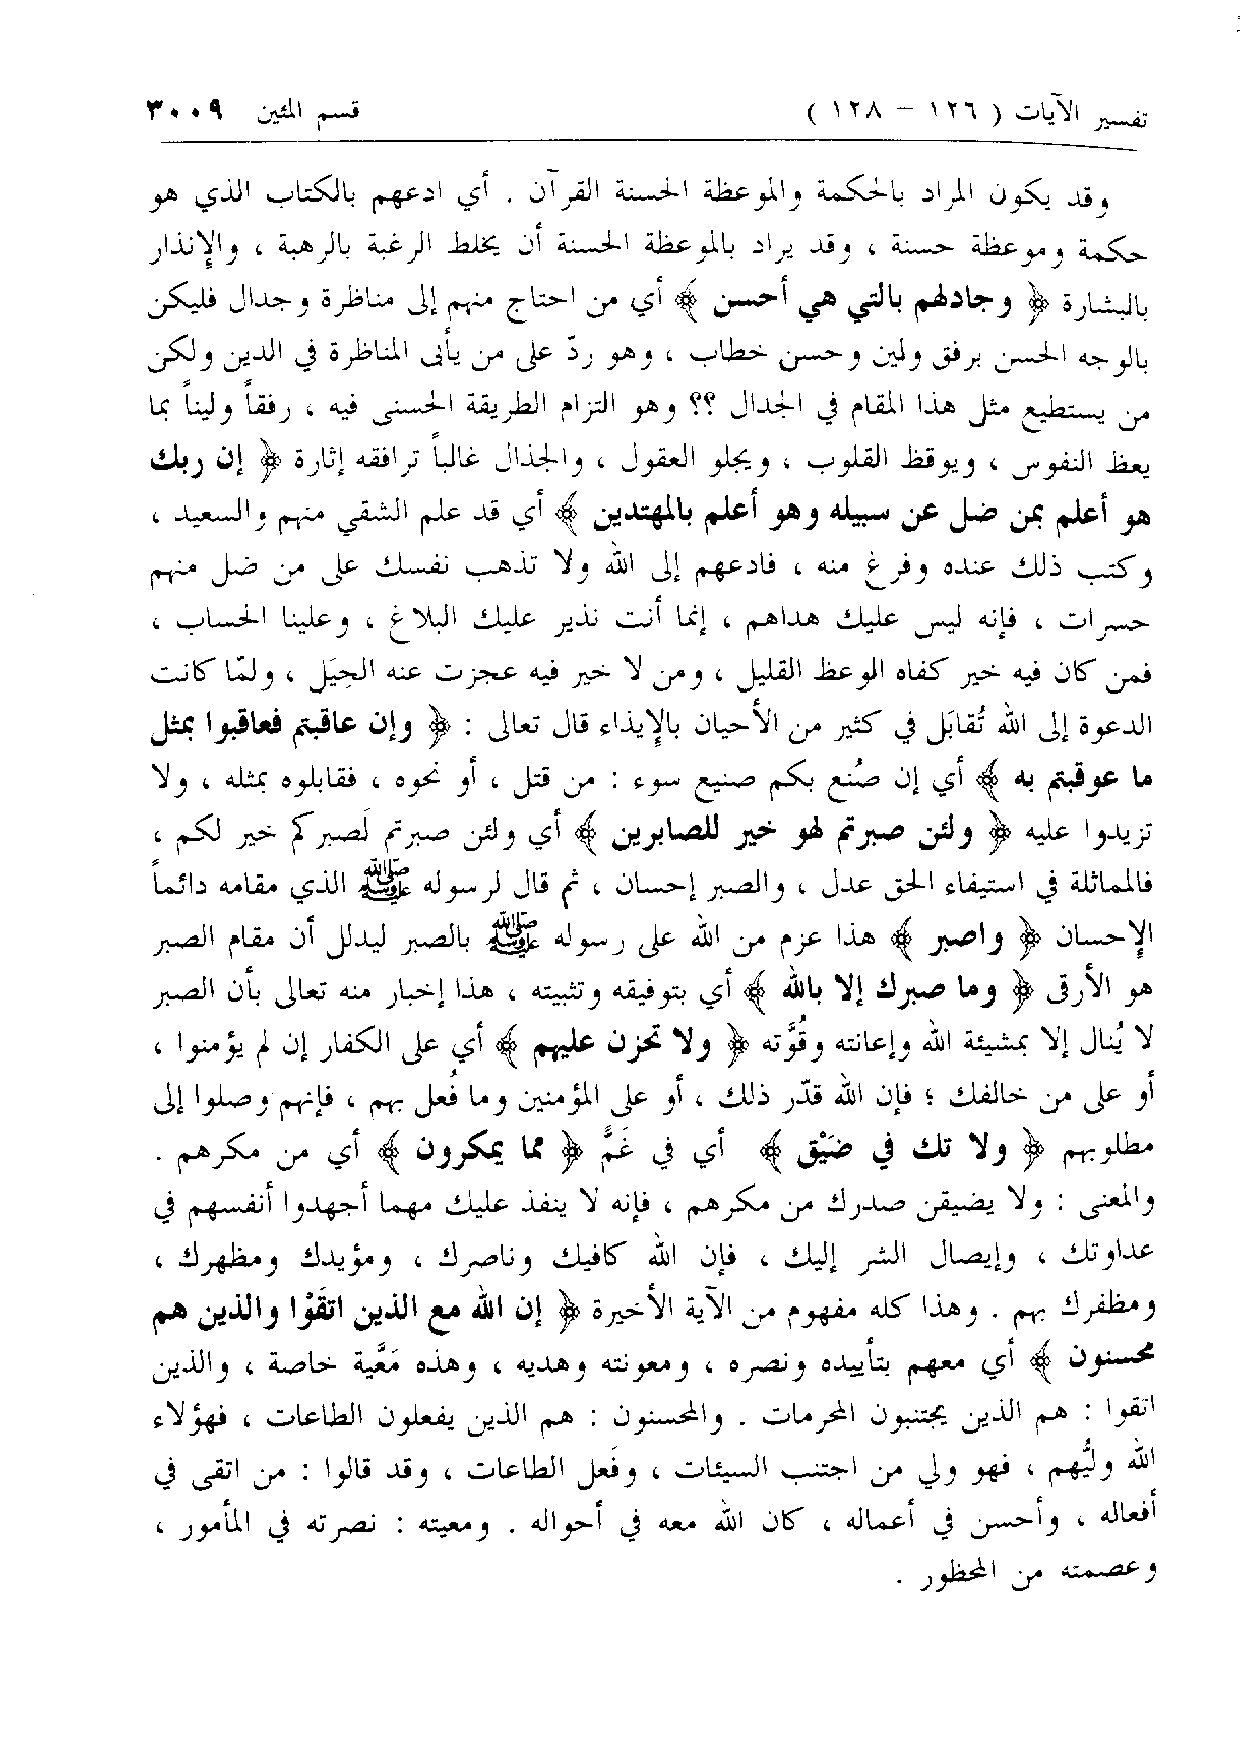 تفسير الآيات ( ١٢٦ - ١٢٨ ) قسم المئين ٣٠٠٩
وقد يكون المراد بالحكمة والموعظة الحسنة القرآن . أي ادعهم بالكتاب الذي هو
حكمة وموعظة حسنة ، وقد يراد بالموعظة الحسنة أن يخلط الرغبة بالرهبة ، والإنذار
بالبشارة ﴿ وجادلهم بالتي هي أحسن ﴾ أي من احتاج منهم إلى مناظرة وجدال فليكن
بالوجه الحسن برفق ولين وحسن خطاب ، وهو ردّ على من يأبى المناظرة في الدين ولكن
من يستطيع مثل هذا المقام في الجدال ؟؟ وهو التزام الطريقة الحسنى فيه ، رفقاً وليناً بما
يعظ النفوس ، ويوقظ القلوب ، ويجلو العقول ، والجدال غالباً ترافقه إثارة ﴿ إن ربك
هو أعلم بمن ضل عن سبيله وهو أعلم بالمهتدين ﴾ أي قد علم الشقي منهم والسعيد ،
وكتب ذلك عنده وفرغ منه ، فادعهم إلى الله ولا تذهب نفسك على من ضل منهم
حسرات ، فإنه ليس عليك هداهم ، إنما أنت نذير عليك البلاغ ، وعلينا الحساب ،
فمن كان فيه خير كفاه الوعظ القليل ، ومن لا خير فيه عجزت عنه الحِيَل ، ولمّا كانت
الدعوة إلى الله تُقابَل في كثير من الأحيان بالإيذاء قال تعالى : ﴿ وإن عاقبتم فعاقبوا بمثل
ما عوقبتم به ﴾ أي إن صُنع بكم صنيع سوء : من قتل ، أو نحوه ، فقابلوه بمثله ، ولا
تزيدوا عليه ﴿ ولئن صبرتم لهو خير للصابرين ﴾ أي ولئن صبرتم لَصبركم خير لكم ،
فالمماثلة في استيفاء الحق عدل ، والصبر إحسان ، ثم قال لرسوله ﷺ الذي مقامه دائماً
الإحسان ﴿ واصبر ﴾ هذا عزم من الله على رسوله ﷺ بالصبر ليدلل أن مقام الصبر
هو الأرقى ﴿ وما صبرك إلا بالله ﴾ أي بتوفيقه وتثبيته ، هذا إخبار منه تعالى بأن الصبر
لا يُنال إلا بمشيئة الله وإعانته وقُوَّته ﴿ ولا تحزن عليهم ﴾ أي على الكفار إن لم يؤمنوا ،
أو على من خالفك ؛ فإن الله قدّر ذلك ، أو على المؤمنين وما فُعل بهم ، فإنهم وصلوا إلى
مطلوبهم ﴿ ولا تك في ضَيْق ﴾ أي في غَمٍّ ﴿ مما يمكرون ﴾ أي من مكرهم .
والمعنى : ولا يضيقن صدرك من مكرهم ، فإنه لا ينفذ عليك مهما أجهدوا أنفسهم في
عداوتك ، وإيصال الشر إليك ، فإن الله كافيك وناصرك ، ومؤيدك ومظهرك ،
ومظفرك بهم . وهذا كله مفهوم من الآية الأخيرة ﴿ إن الله مع الذين اتقَوْا والذين هم
محسنون ﴾ أي معهم بتأييده ونصره ، ومعونته وهديه ، وهذه مَعَّية خاصة ، والذين
اتقوا : هم الذين يجتنبون المحرمات . والمحسنون : هم الذين يفعلون الطاعات ، فهؤلاء
الله وليُّهم ، فهو ولي من اجتنب السيئات ، وفَعل الطاعات ، وقد قالوا : من اتقى في
أفعاله ، وأحسن في أعماله ، كان الله معه في أحواله . ومعيته : نصرته في المأمور ،
وعصمته من المحظور .